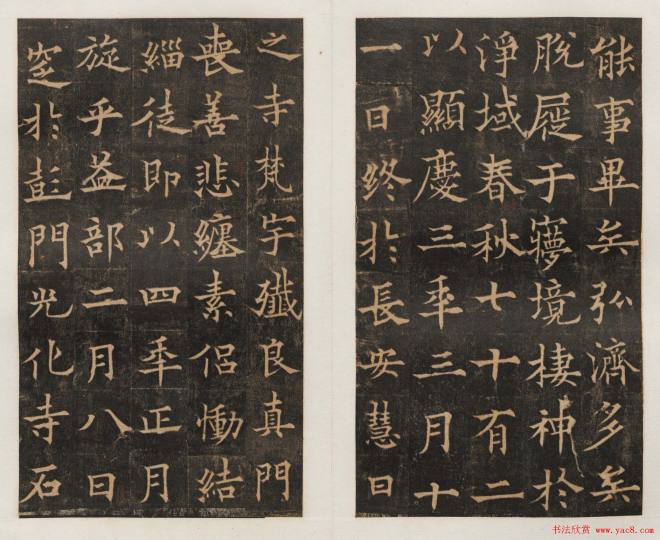 能事畢矣弘濟多矣
脫屣于寢境棲神於
淨域春秋七十有二
以顯慶三年三月十
一日終於長安慧日
之寺梵宇殲良真門
喪善悲纏素侶慟結
緇徒即以四年正月
旋乎益部二月八日
窆於彭門光化寺石
书法欣赏 www.yac8.com